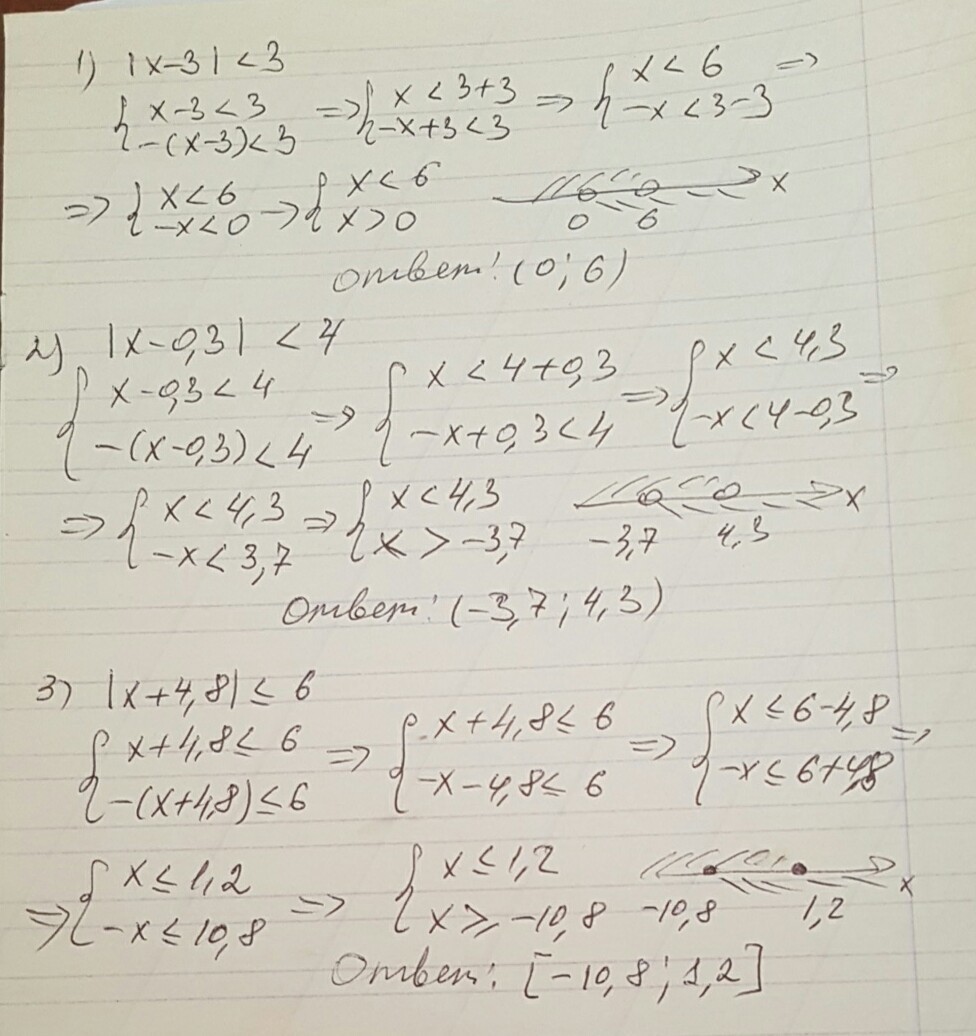 1) |x-3| < 3
{ x-3<3 => { x < 3+3 => { x < 6 =>
{ -(x-3)<3 { -x+3<3 { -x < 3-3
=> { x<6 -> { x < 6 x
{ -x<0 { x > 0 0 6
Ответ: (0; 6)
2) |x-0,3| < 4
{ x-0,3 < 4 => { x < 4+0,3 => { x < 4,3 =>
{ -(x-0,3) < 4 { -x+0,3<4 { -x<4-0,3
=> { x < 4,3 => { x < 4,3 x
{ -x < 3,7 { x > -3,7 -3,7 4,3
Ответ: (-3,7; 4,3)
3) |x+4,8| ≤ 6
{ x+4,8 ≤ 6 => { x+4,8 ≤ 6 => { x ≤ 6-4,8 =>
{ -(x+4,8) ≤ 6 { -x-4,8 ≤ 6 { -x ≤ 6+4,8
=> { x ≤ 1,2 => { x ≤ 1,2 x
{ -x ≤ 10,8 { x ≥ -10,8 -10,8 1,2
Ответ: [-10,8; 1,2]